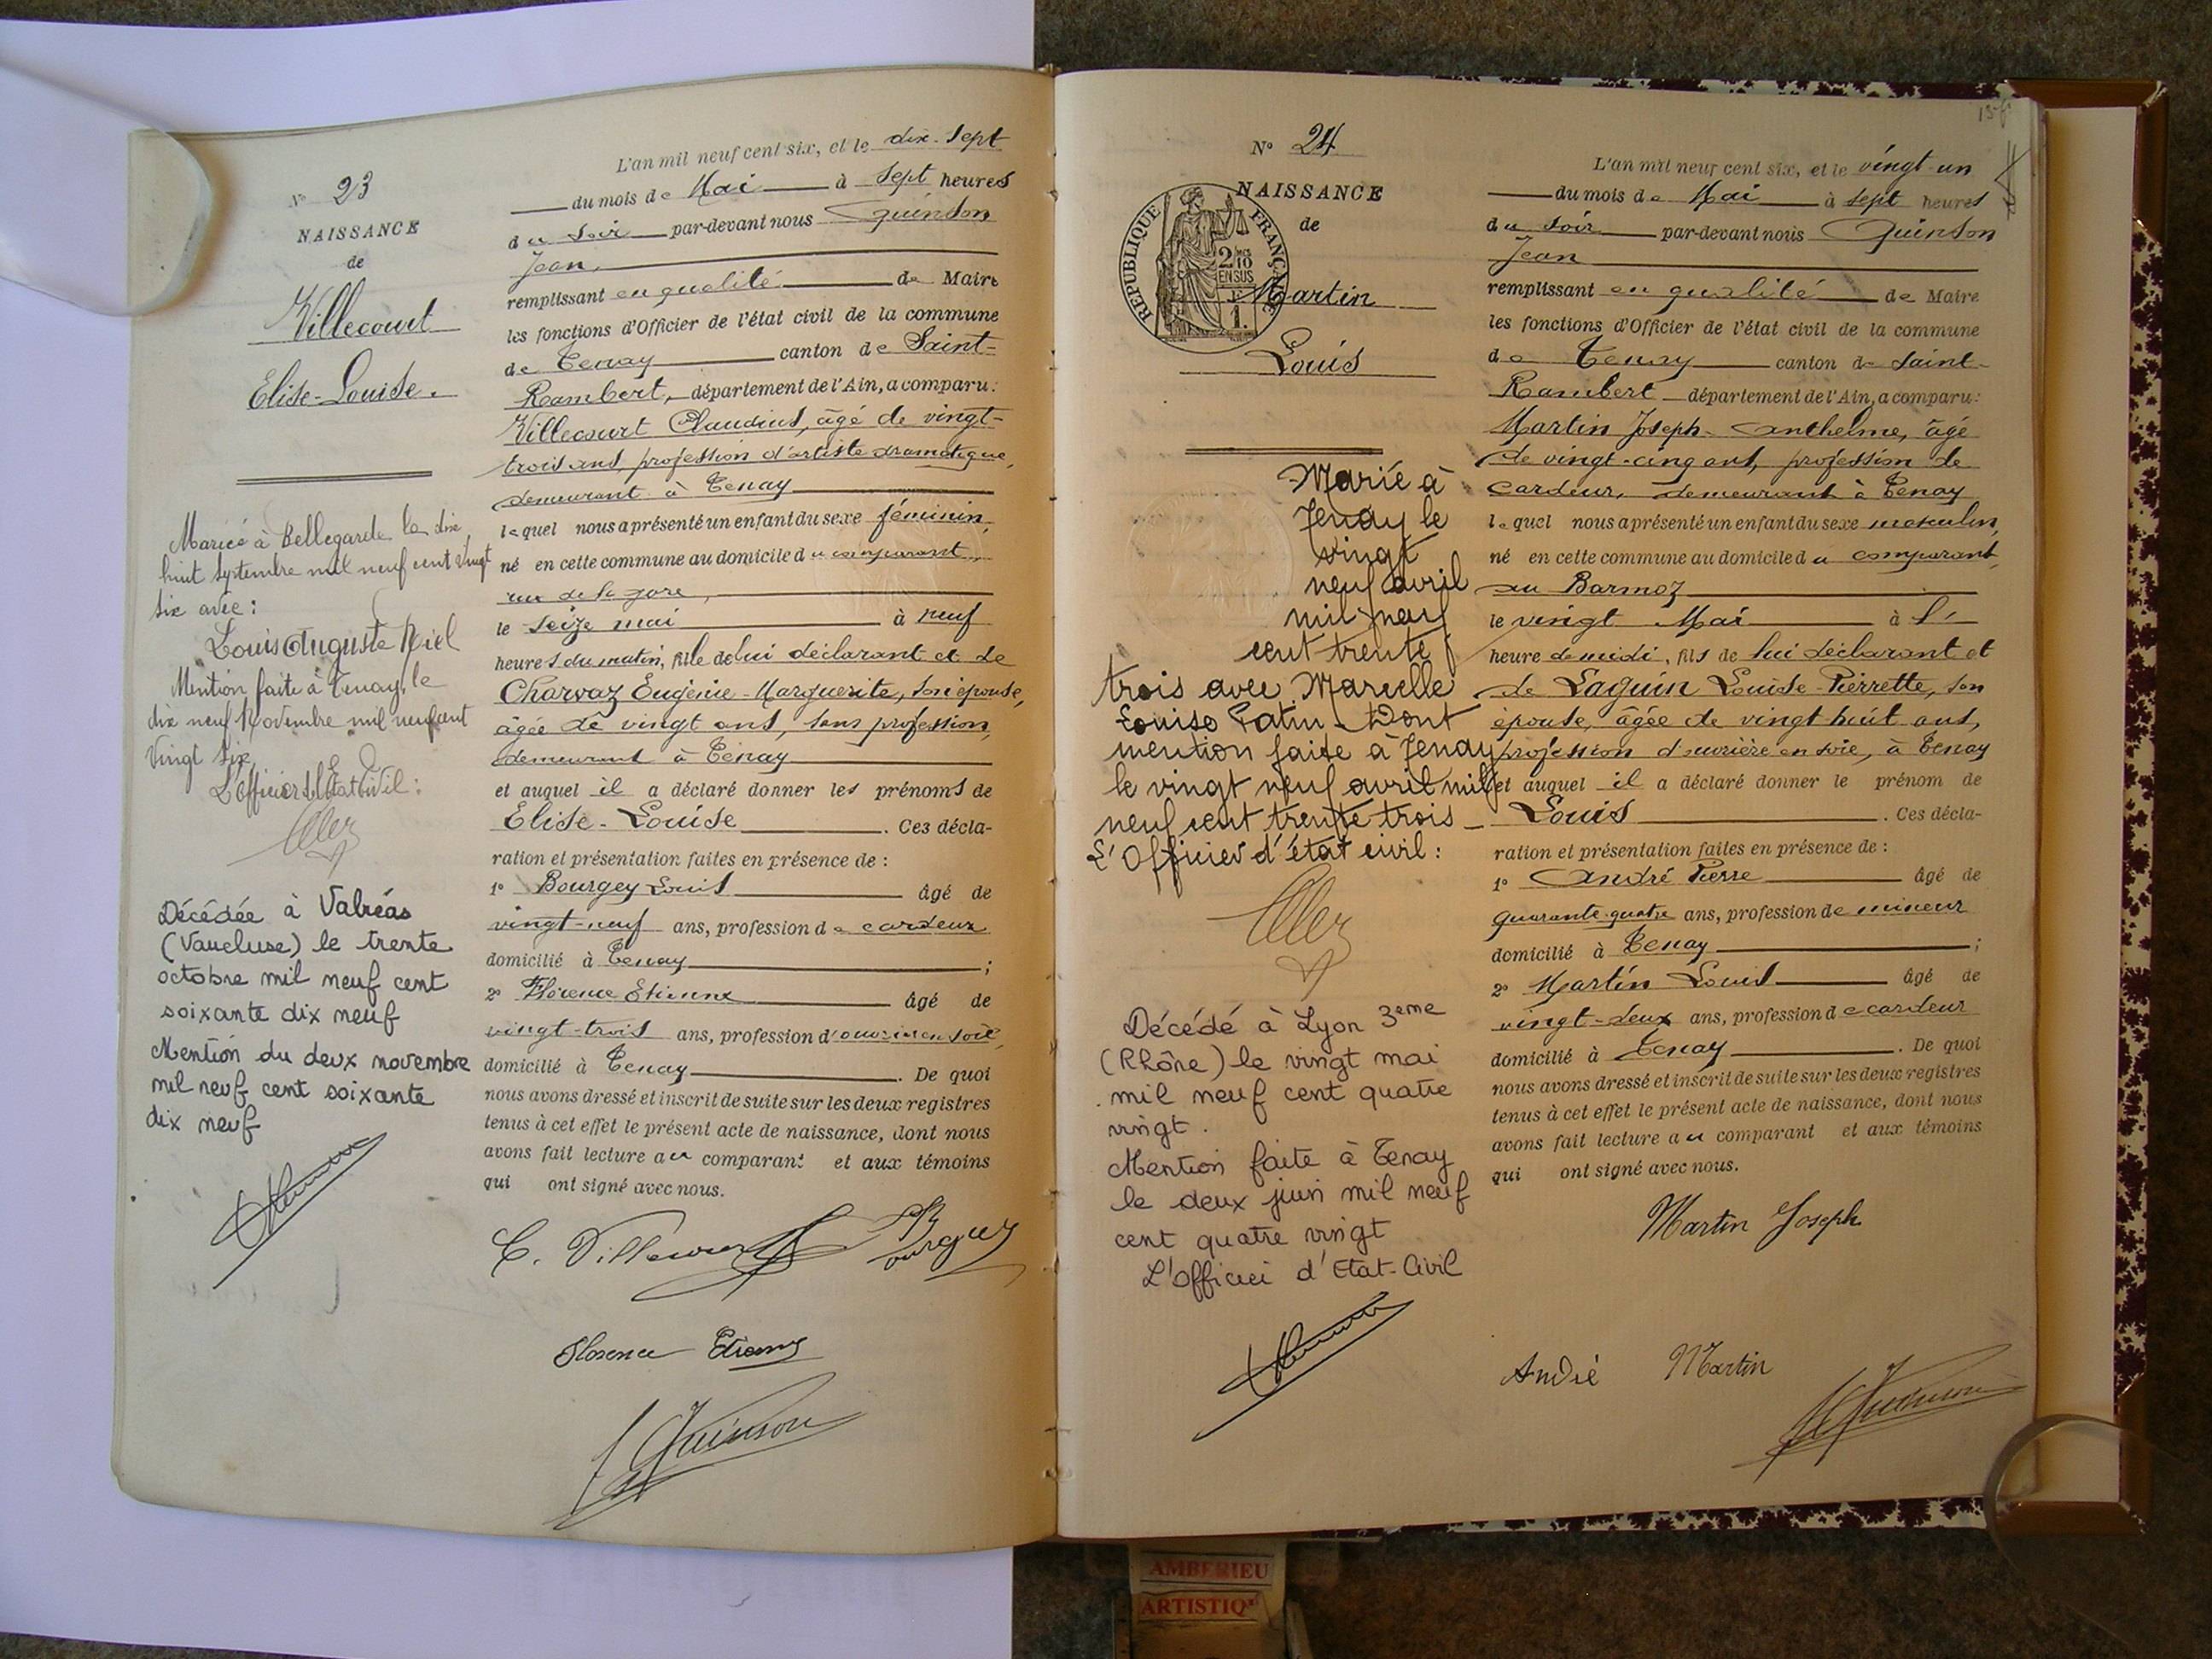 N° 23
NAISSANCE
de
Villecourt
Elise-Louise.
Mariée à Bellegarde le dix
huit septembre mil neuf cent vingt
six avec :
Louis Auguste Niel
Mention faite à Tenay, le
dix neuf Novembre mil neuf cent
vingt six
L'Officier de l'Etat Civil :
Décédée à Valréas
(Vaucluse) le trente
octobre mil neuf cent
soixante dix neuf
Mention du deux novembre
mil neuf cent soixante
dix neuf
L'an mil neuf cent six, et le dix-sept
du mois de Mai à sept heures
du soir par-devant nous Quinson
Jean,
remplissant en qualité de Maire
les fonctions d'Officier de l'état civil de la commune
de Tenay canton de Saint-
Rambert, département de l'Ain, a comparu :
Villecourt Claudius, âgé de vingt-
trois ans, profession d'artiste dramatique,
demeurant à Tenay
lequel nous a présenté un enfant du sexe féminin,
né en cette commune au domicile du comparant,
rue de la gare,
le seize mai à neuf
heures du matin, fille de lui déclarant et de
Charvaz Eugénie-Marguerite, son épouse,
âgée de vingt ans, sans profession,
demeurant à Tenay
et auquel il a déclaré donner les prénoms de
Elise-Louise. Ces décla-
ration et présentation faites en présence de :
1° Bourgey Louis âgé de
vingt-neuf ans, profession de cardeur
domicilié à Tenay ;
2° Florence Etienne âgé de
vingt-trois ans, profession d'ouvrier en soie,
domicilié à Tenay. De quoi
nous avons dressé et inscrit de suite sur les deux registres
tenus à cet effet le présent acte de naissance, dont nous
avons fait lecture au comparant et aux témoins
qui ont signé avec nous.
C. Villecourt Bourgey
Florence Etienne
J Quinson
N° 24
NAISSANCE
de
REPUBLIQUE FRANÇAISE
2/10
EN SUS
1.
Martin
Louis
Marié à
Tenay le
vingt
neuf avril
mil neuf
cent trente
trois avec Marcelle
Louise Patin - Dont
mention faite à Tenay
le vingt neuf avril mil
neuf cent trente trois
L'Officier d'état civil :
Décédé à Lyon 3eme
(Rhône) le vingt mai
mil neuf cent quatre
vingt.
Mention faite à Tenay
le deux juin mil neuf
cent quatre vingt
L'Officier d'Etat-Civil
L'an mil neuf cent six, et le vingt-un
du mois de Mai à sept heures
du soir par-devant nous Quinson
Jean
remplissant en qualité de Maire
les fonctions d'Officier de l'état civil de la commune
de Tenay canton de Saint-
Rambert département de l'Ain, a comparu :
Martin Joseph-Anthelme, âgé
de vingt-cinq ans, profession de
cardeur, demeurant à Tenay
lequel nous a présenté un enfant du sexe masculin,
né en cette commune au domicile du comparant,
au Barmoz
le vingt Mai à l'
heure de midi, fils de lui déclarant et
de Laguin Louise-Pierrette, son
épouse, âgée de vingt-huit ans,
profession d'ouvrière en soie, à Tenay
et auquel il a déclaré donner le prénom de
Louis. Ces décla-
ration et présentation faites en présence de :
1° André Pierre âgé de
quarante-quatre ans, profession de mineur
domicilié à Tenay ;
2° Martin Louis âgé de
vingt-deux ans, profession de cardeur
domicilié à Tenay. De quoi
nous avons dressé et inscrit de suite sur les deux registres
tenus à cet effet le présent acte de naissance, dont nous
avons fait lecture au comparant et aux témoins
qui ont signé avec nous.
Martin Joseph
André Martin
J Quinson
AMBERIEU
ARTISTIQ